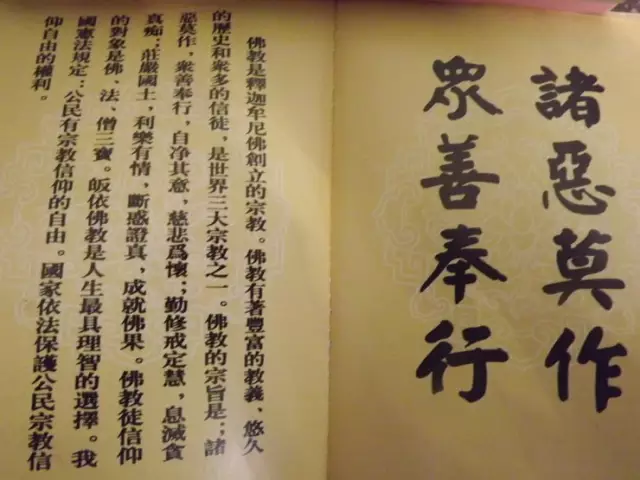 諸惡莫作
眾善奉行
佛教是釋迦牟尼佛創立的宗教。佛教有著豐富的教義、悠久
的歷史和衆多的信徒，是世界三大宗教之一。佛教的宗旨是：諸
惡莫作，衆善奉行，自净其意，慈悲爲懷；勤修戒定慧，息滅貪
真痴；莊嚴國土，利樂有情，斷惑證真，成就佛果。佛教徒信仰
的對象是佛、法、僧三寶。皈依佛教是人生最具理智的選擇。我
國憲法規定：公民有宗教信仰的自由。國家依法保護公民宗教信
仰自由的權利。